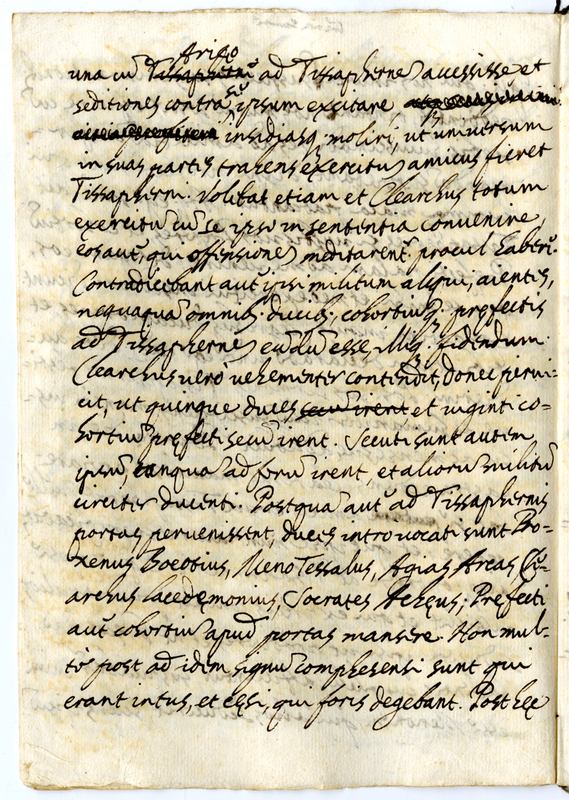 Arięo
una cũ Tissaphernẽ ad Tissapherne accessisse, et
seditiones contra sũ ipsum excitare,
insidiasq; moliri, ut universum
in suas partis trahens exercitũ amicus fieret
Tissapherni. Volebat etiam et Clearchus totum
exercitũ cũ se ipso in sententia convenire,
eos aut̃, qui offensione meditarent̃ procul haberi.
Contradicebant aut̃ ipsi militum aliqui, aientes,
nequaquã omnib; ducib; cohortiuq; pręfectis
ad Tissapherne eundũ esse, illiq; fidendum.
Clearchus verò vehementer contendit, donec pervi=
cit, ut quinque duces secũ irent et viginti co=
hortiũ pręfecti secũ irent. Secuti sunt autem
ipsũ, tanqua ad forũ irent, et aliorũ militũ
circiter ducenti. Postqua aut̃ ad Tissaphernis
portas pervenissent, duces introvocati sunt Pro=
xenus Boeotius, Meno Tessalus, Agias Arcas, Cle=
archus Lacedęmonius, Socrates Achęus; Pręfecti
aut̃ cohortiũ apud portas mansere. Non mul=
tò post ad idem signũ comprehensi sunt qui
erant intus, et cęsi, qui foris degebant. Post hęc